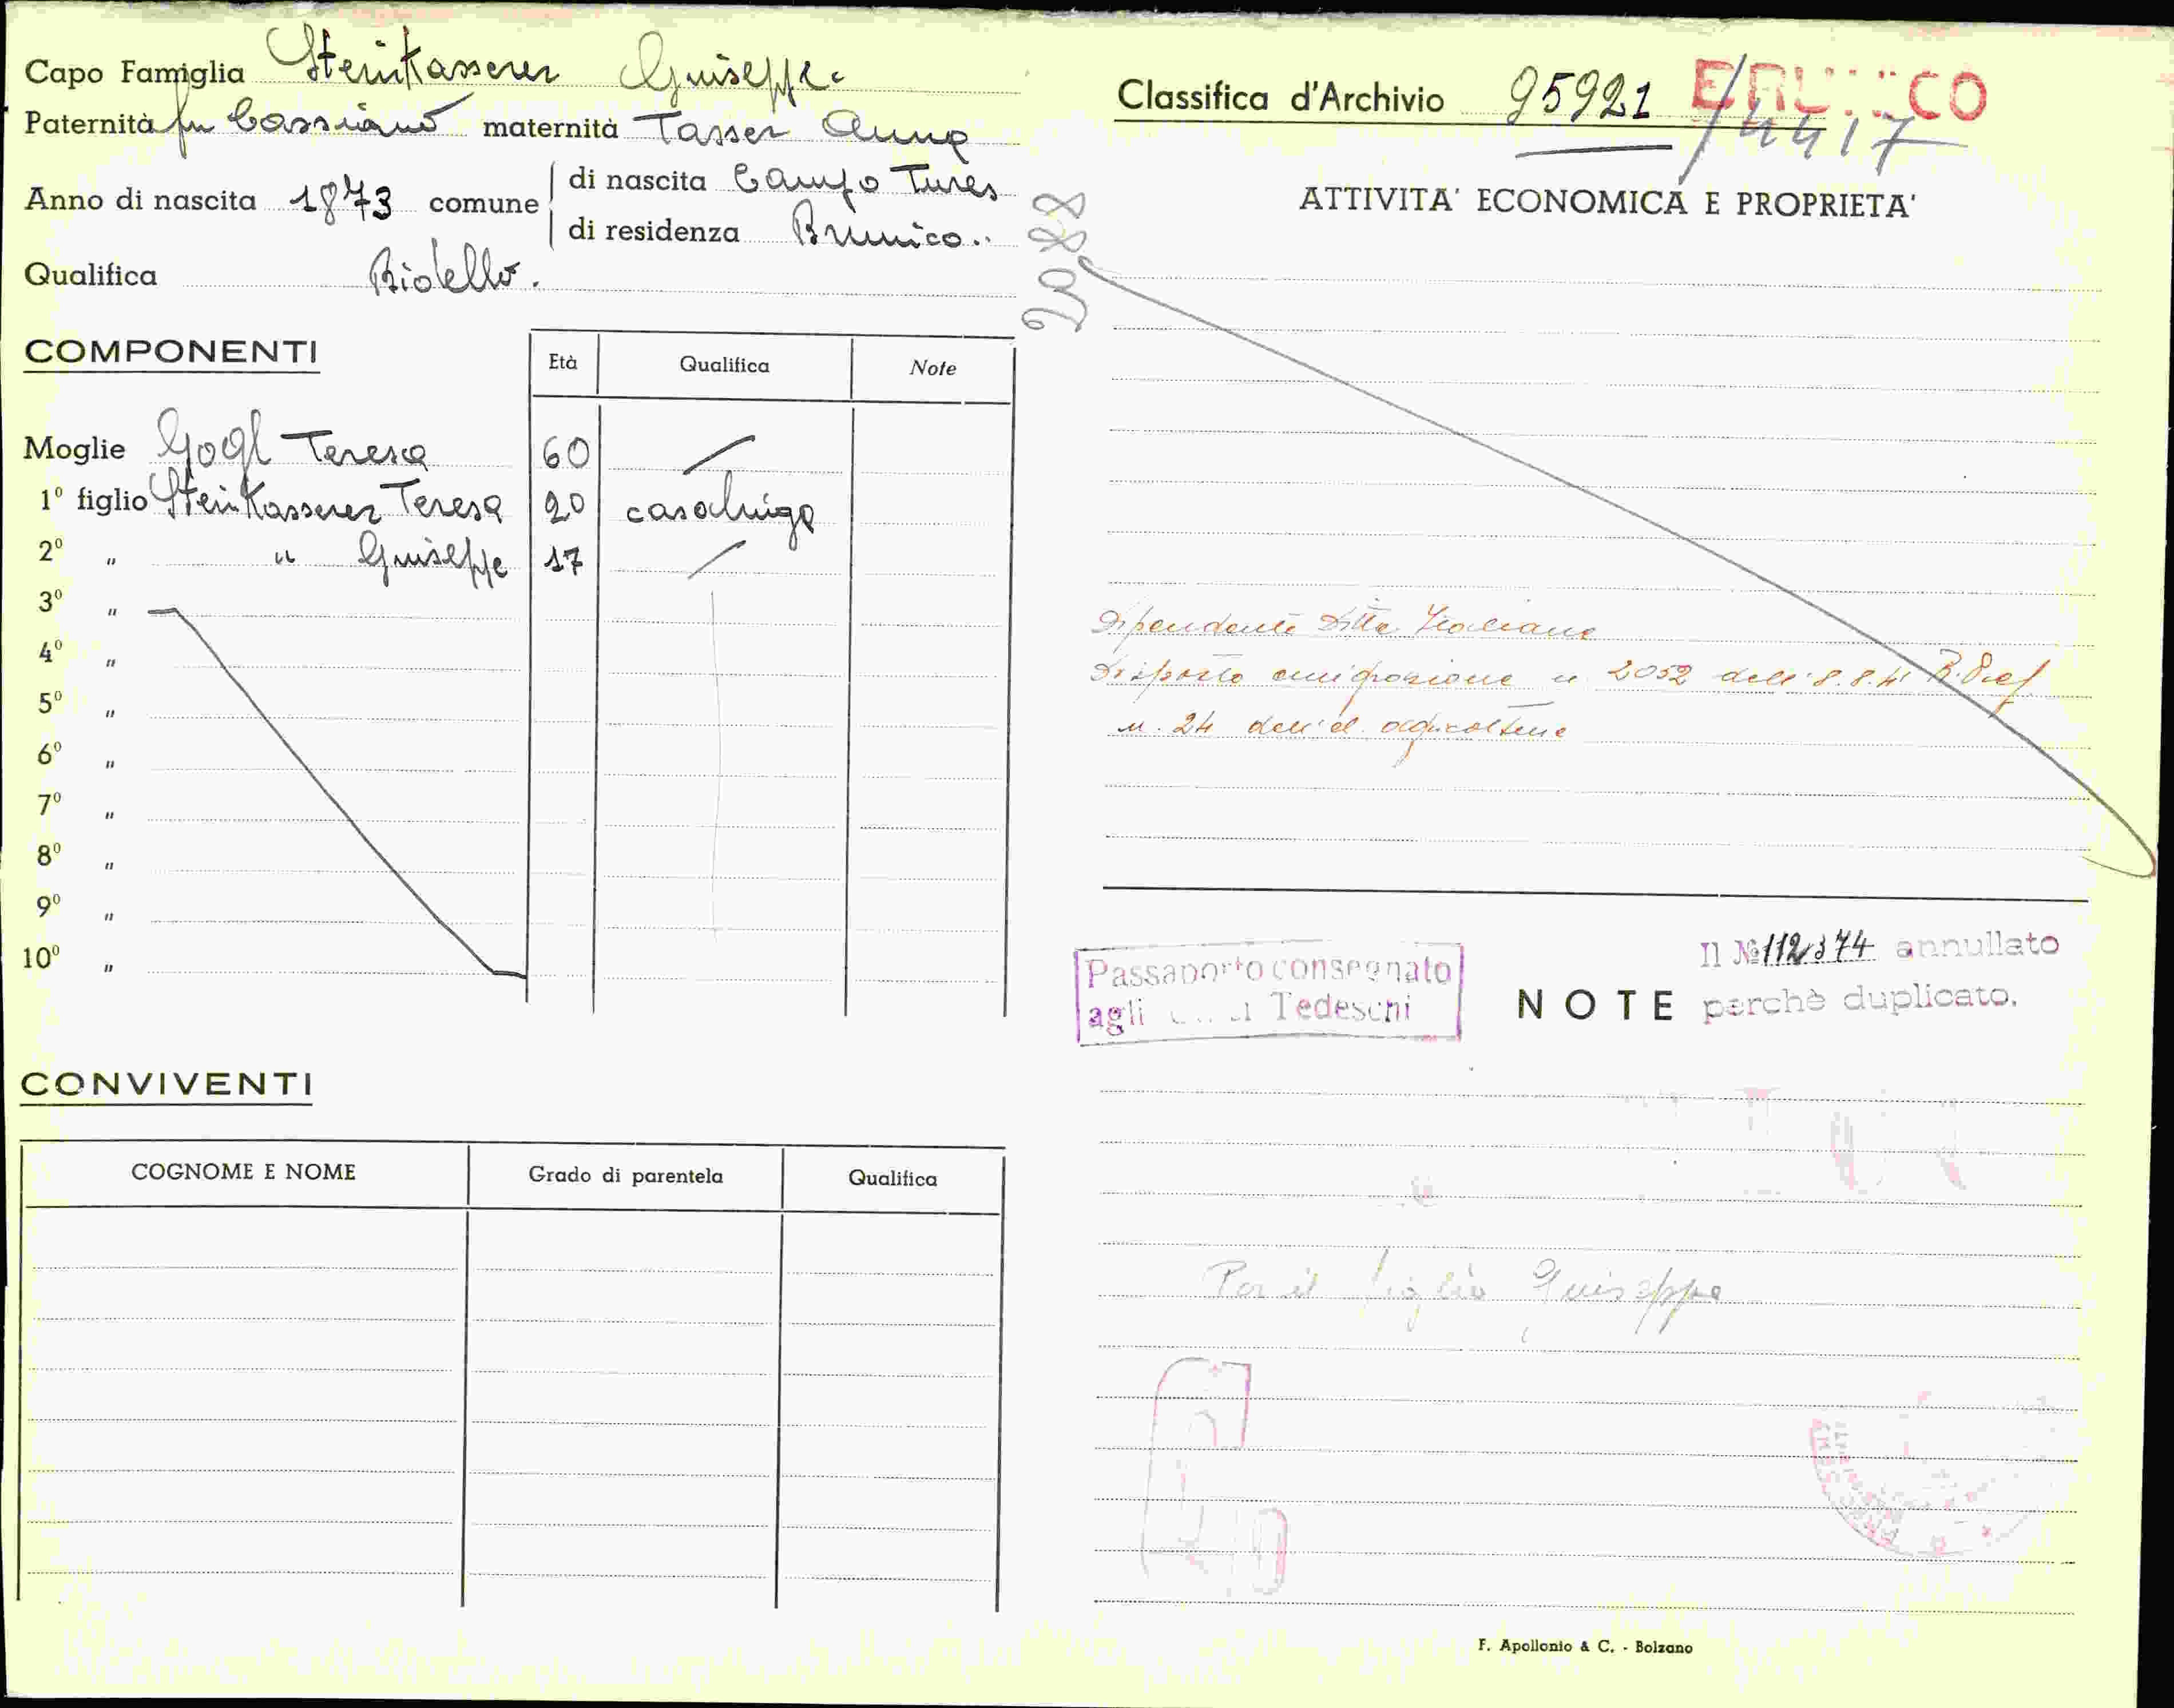 Capo Famiglia Steinkasserer Giuseppe
Paternità fu Cassiano maternità Tasser Anna
Anno di nascita 1873 comune di nascita Campo Tures
di residenza Brunico
Qualifica Bidello.
COMPONENTI
Età Qualifica Note
Moglie Gogl Teresa 60
1º figlio Steinkasserer Teresa 20 casalinga
2º " " Giuseppe 17
3º "
4º "
5º "
6º "
7º "
8º "
9º "
10º "
CONVIVENTI
COGNOME E NOME Grado di parentela Qualifica
Classifica d'Archivio 95921 /4417
ATTIVITA' ECONOMICA E PROPRIETA'
Dipendente Ditta Italiana
Disposto emigrazione n 2052 dell' 8.8.41 R. Pref
n. 24 dell'
Passaporto consegnato
agli Tedeschi
Il Nº 112374 annullato
NOTE perchè duplicato.
Per il figlio Giuseppe
F. Apollonio & C. - Bolzano